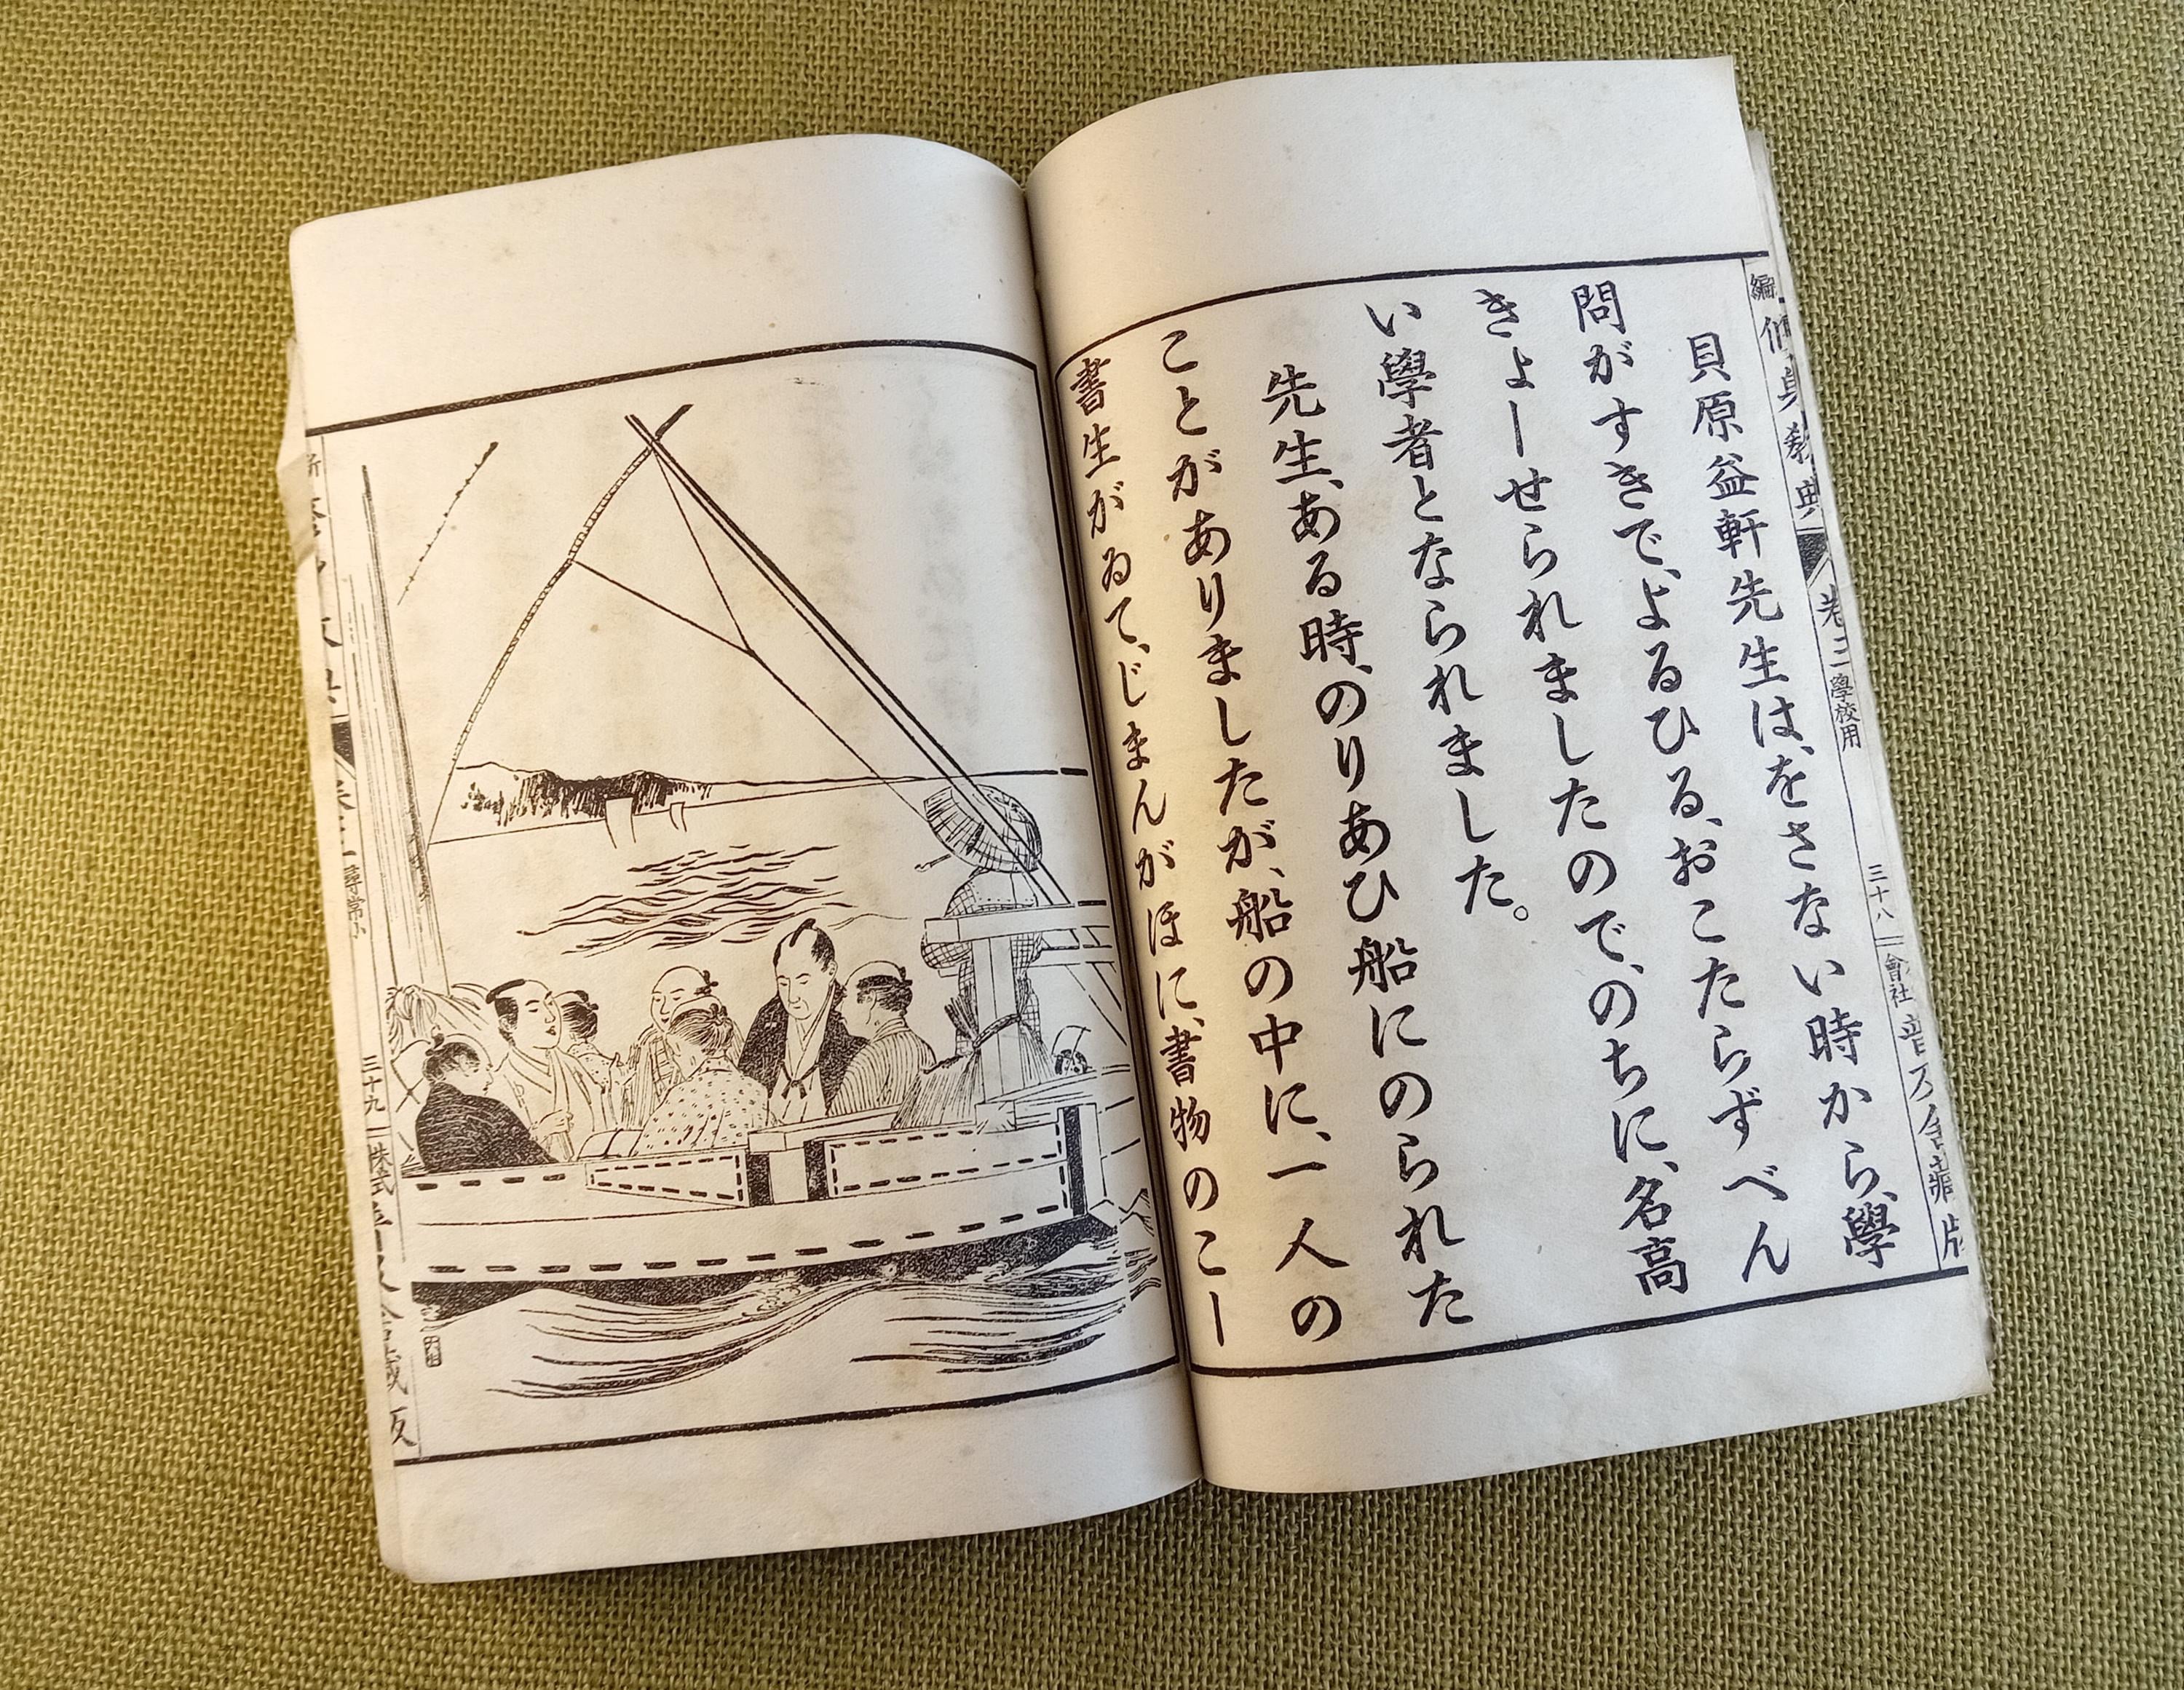 貝原益軒先生は、をさない時から、學
問がすきで、よるひる、おこたらずべん
きょーせられましたので、のちに、名高
い學者となられました。
先生、ある時、のりあひ船にのられた
ことがありましたが、船の中に、一人の
書生がゐて、じまんがほに、書物のこー
卷三 學校用
三十八
會社
尋常小
三十九
株式